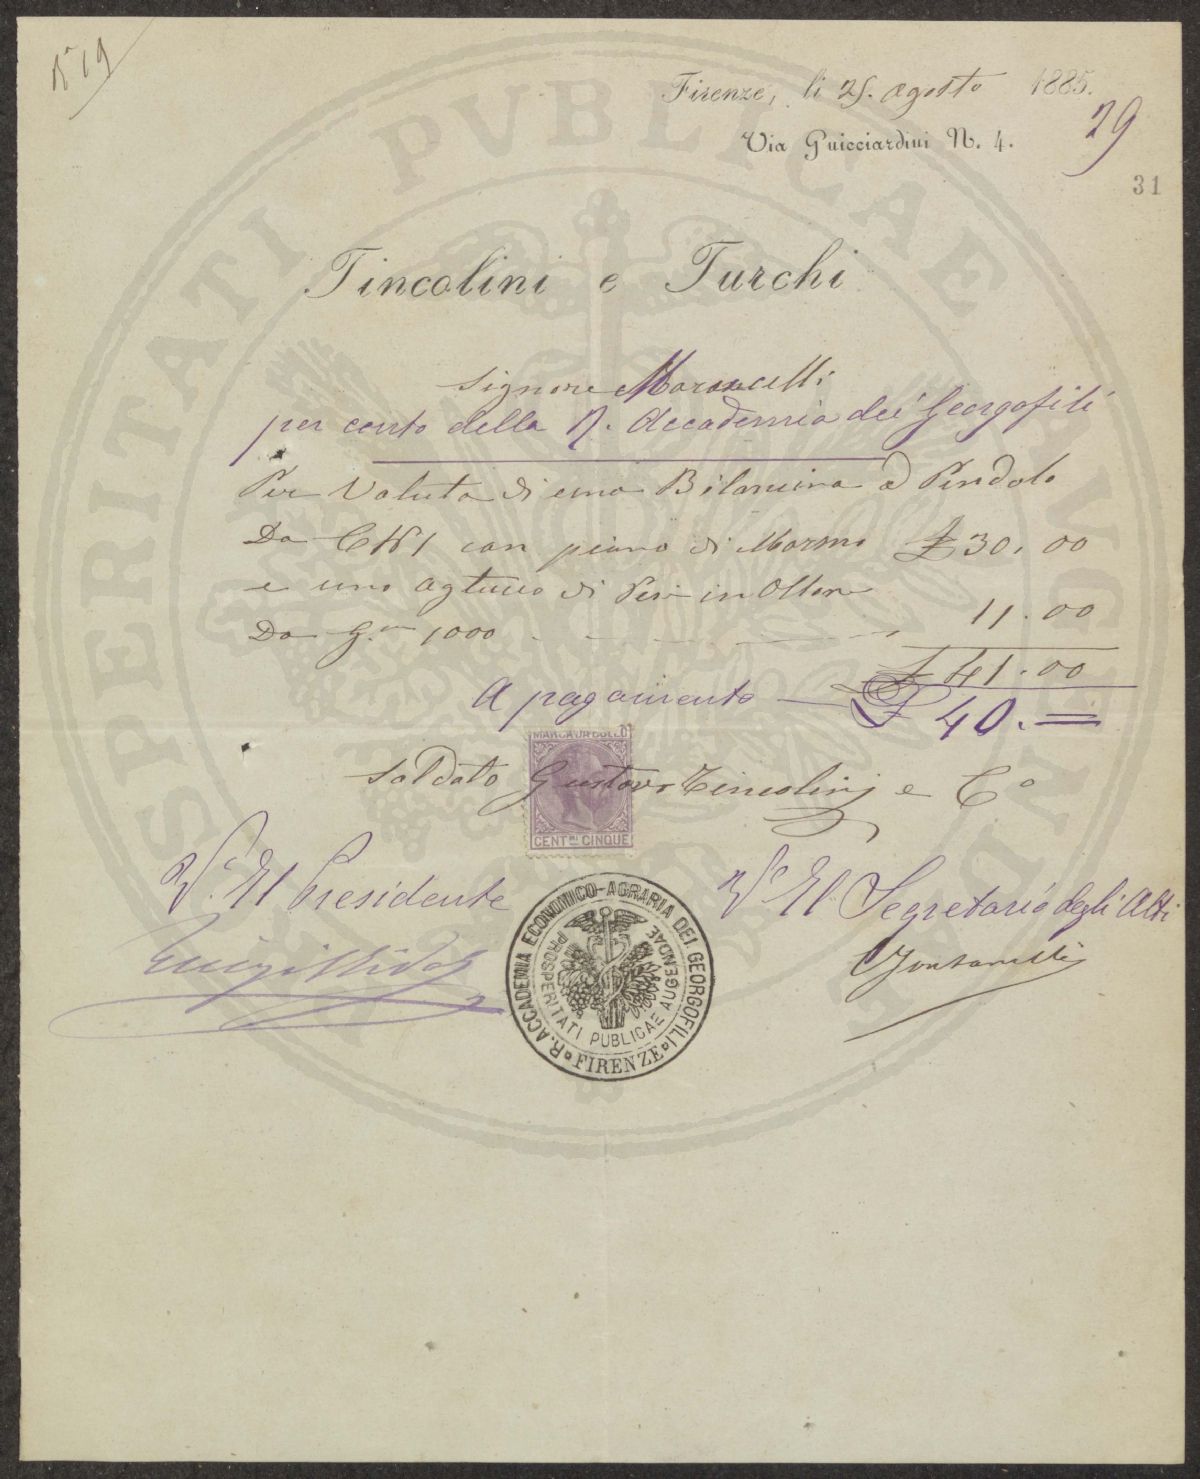 N° 19
Firenze, li 25. agosto 1885.
29
Via Guicciardini N. 4.
31
Tincolini e Turchi
Signore Maroncelli
per conto della R. Accademia dei Georgofili
Per Valuta di una Bilancina a Pendolo
Da CH 1 con piano di Marmo £ 30.00
e uno astuccio di Pesi in Ottone
Da G.mi 1000 - - - - - 11.00
£ 41.00
A pagamento — £ 40. =
MARCA DA BOLLO
Saldato Gustavo Tincolini e C°
CENT.MI CINQUE
V° Il Presidente
V° Il Segretario degli Atti
Luigi Ridolfi
Fontanelli
R. ACCADEMIA ECONOMICO-AGRARIA DEI GEORGOFILI
PROSPERITATI PUBLICAE AUGENDAE
FIRENZE
PROSPERITATI PVBLICAE AVGENDAE